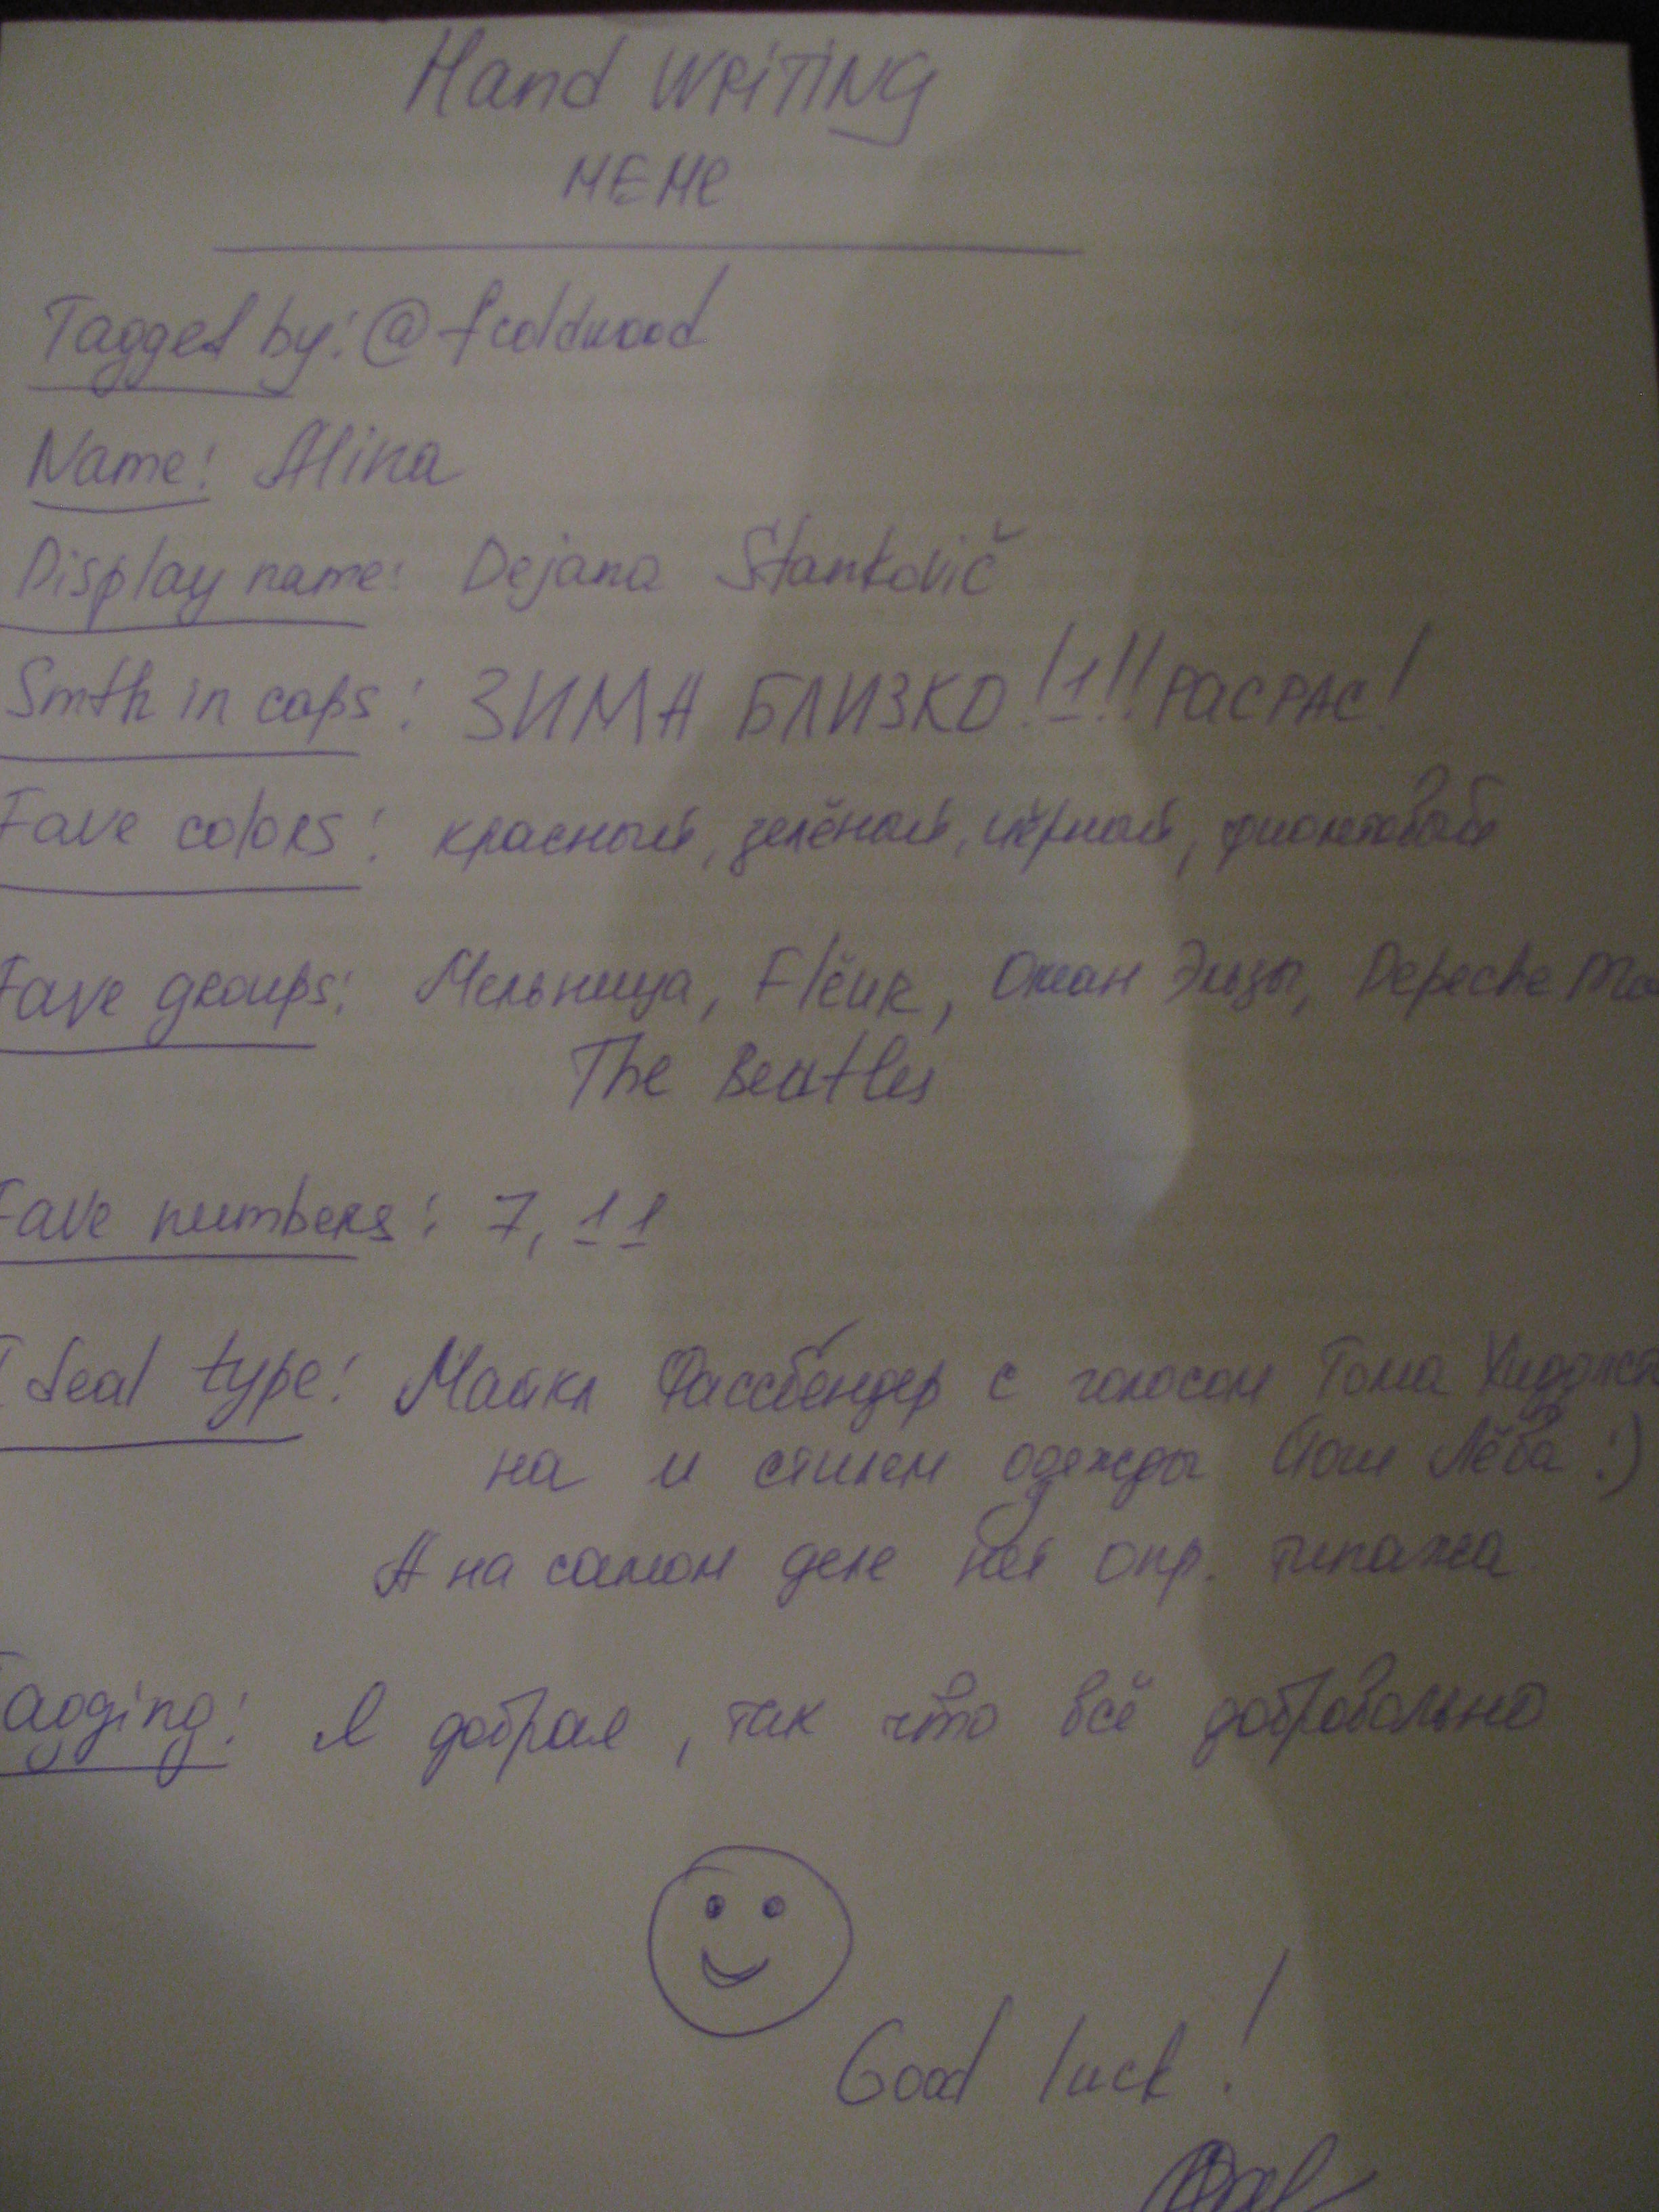 Hand WRiTiNG
MEMe
Tagged by: @fcoldwood
Name: Alina
Display name: Dejana Stankovič
Smth in caps: ЗИМА БЛИЗКО!1!! РАСРАС!
Fave colors: красный, зелёный, чёрный, фиолетовый
Fave groups: Мельница, Flëur, Океан Эльзы, Depeche Mo
The Beatles
Fave numbers: 7, 11
Ideal type: Майкл Фассбендер с голосом Тома Хиддлсто
на и стилем одежды Йоги Лёва :)
А на самом деле нет опр. типажа
Tagging: Я добрая, так что всё добровольно
Good luck!